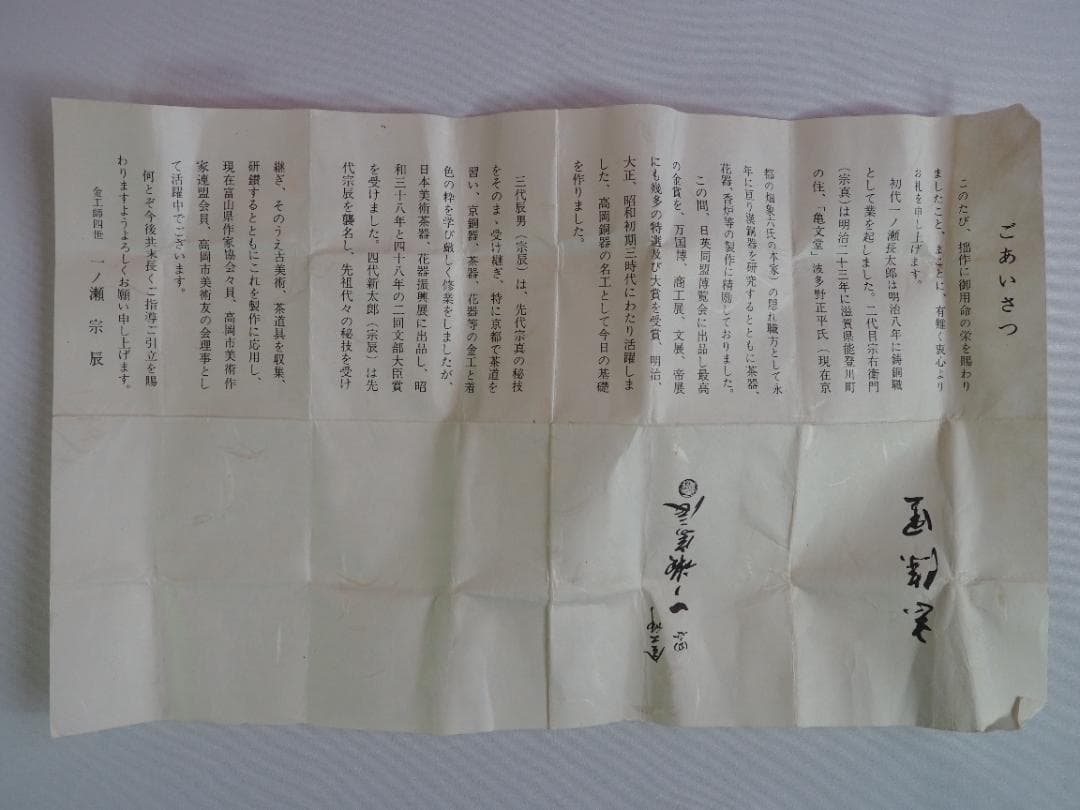 ごあいさつ
このたび、拙作に御用命の栄を賜わり
ましたこと、まことに、有難く衷心より
お礼を申し上げます。
初代一ノ瀬長太郎は明治八年に鋳銅職
として業を起しました。二代目宗右衛門
(宗真)は明治二十三年に滋賀県能登川町
の住、「亀文堂」波多野正平氏(現在京
都の秦象六氏の本家)の隠れ職方として永
年に亘り漢銅器を研究するとともに茶器、
花器、香炉等の製作に精励しておりました。
この間、日英同盟博覧会に出品し最高
の金賞を、万国博、商工展、文展、帝展
にも幾多の特選及び大賞を受賞、明治、
大正、昭和初期三時代にわたり活躍しま
した。高岡銅器の名工として今日の基礎
を作りました。
三代辰男(宗辰)は、先代宗真の秘技
をそのまゝ受け継ぎ、特に京都で茶道を
習い、京銅器、茶器、花器等の金工と着
色の粋を学び厳しく修業をしましたが、
日本美術茶器、花器振興展に出品し、昭
和三十八年と四十八年の二回文部大臣賞
を受けました。四代新太郎(宗辰)は先
代宗辰を襲名し、先祖代々の秘技を受け
継ぎ、そのうえ古美術、茶道具を収集、
研鑽するとともにこれを製作に応用し、
現在富山県作家協会々員、高岡市美術作
家連盟会員、高岡市美術友の会理事とし
て活躍中でございます。
何とぞ今後共末長くご指導ご引立を賜
わりますようよろしくお願い申し上げます。
金工師四世 一ノ瀬宗辰
金工師
四世
一ノ瀬宗辰